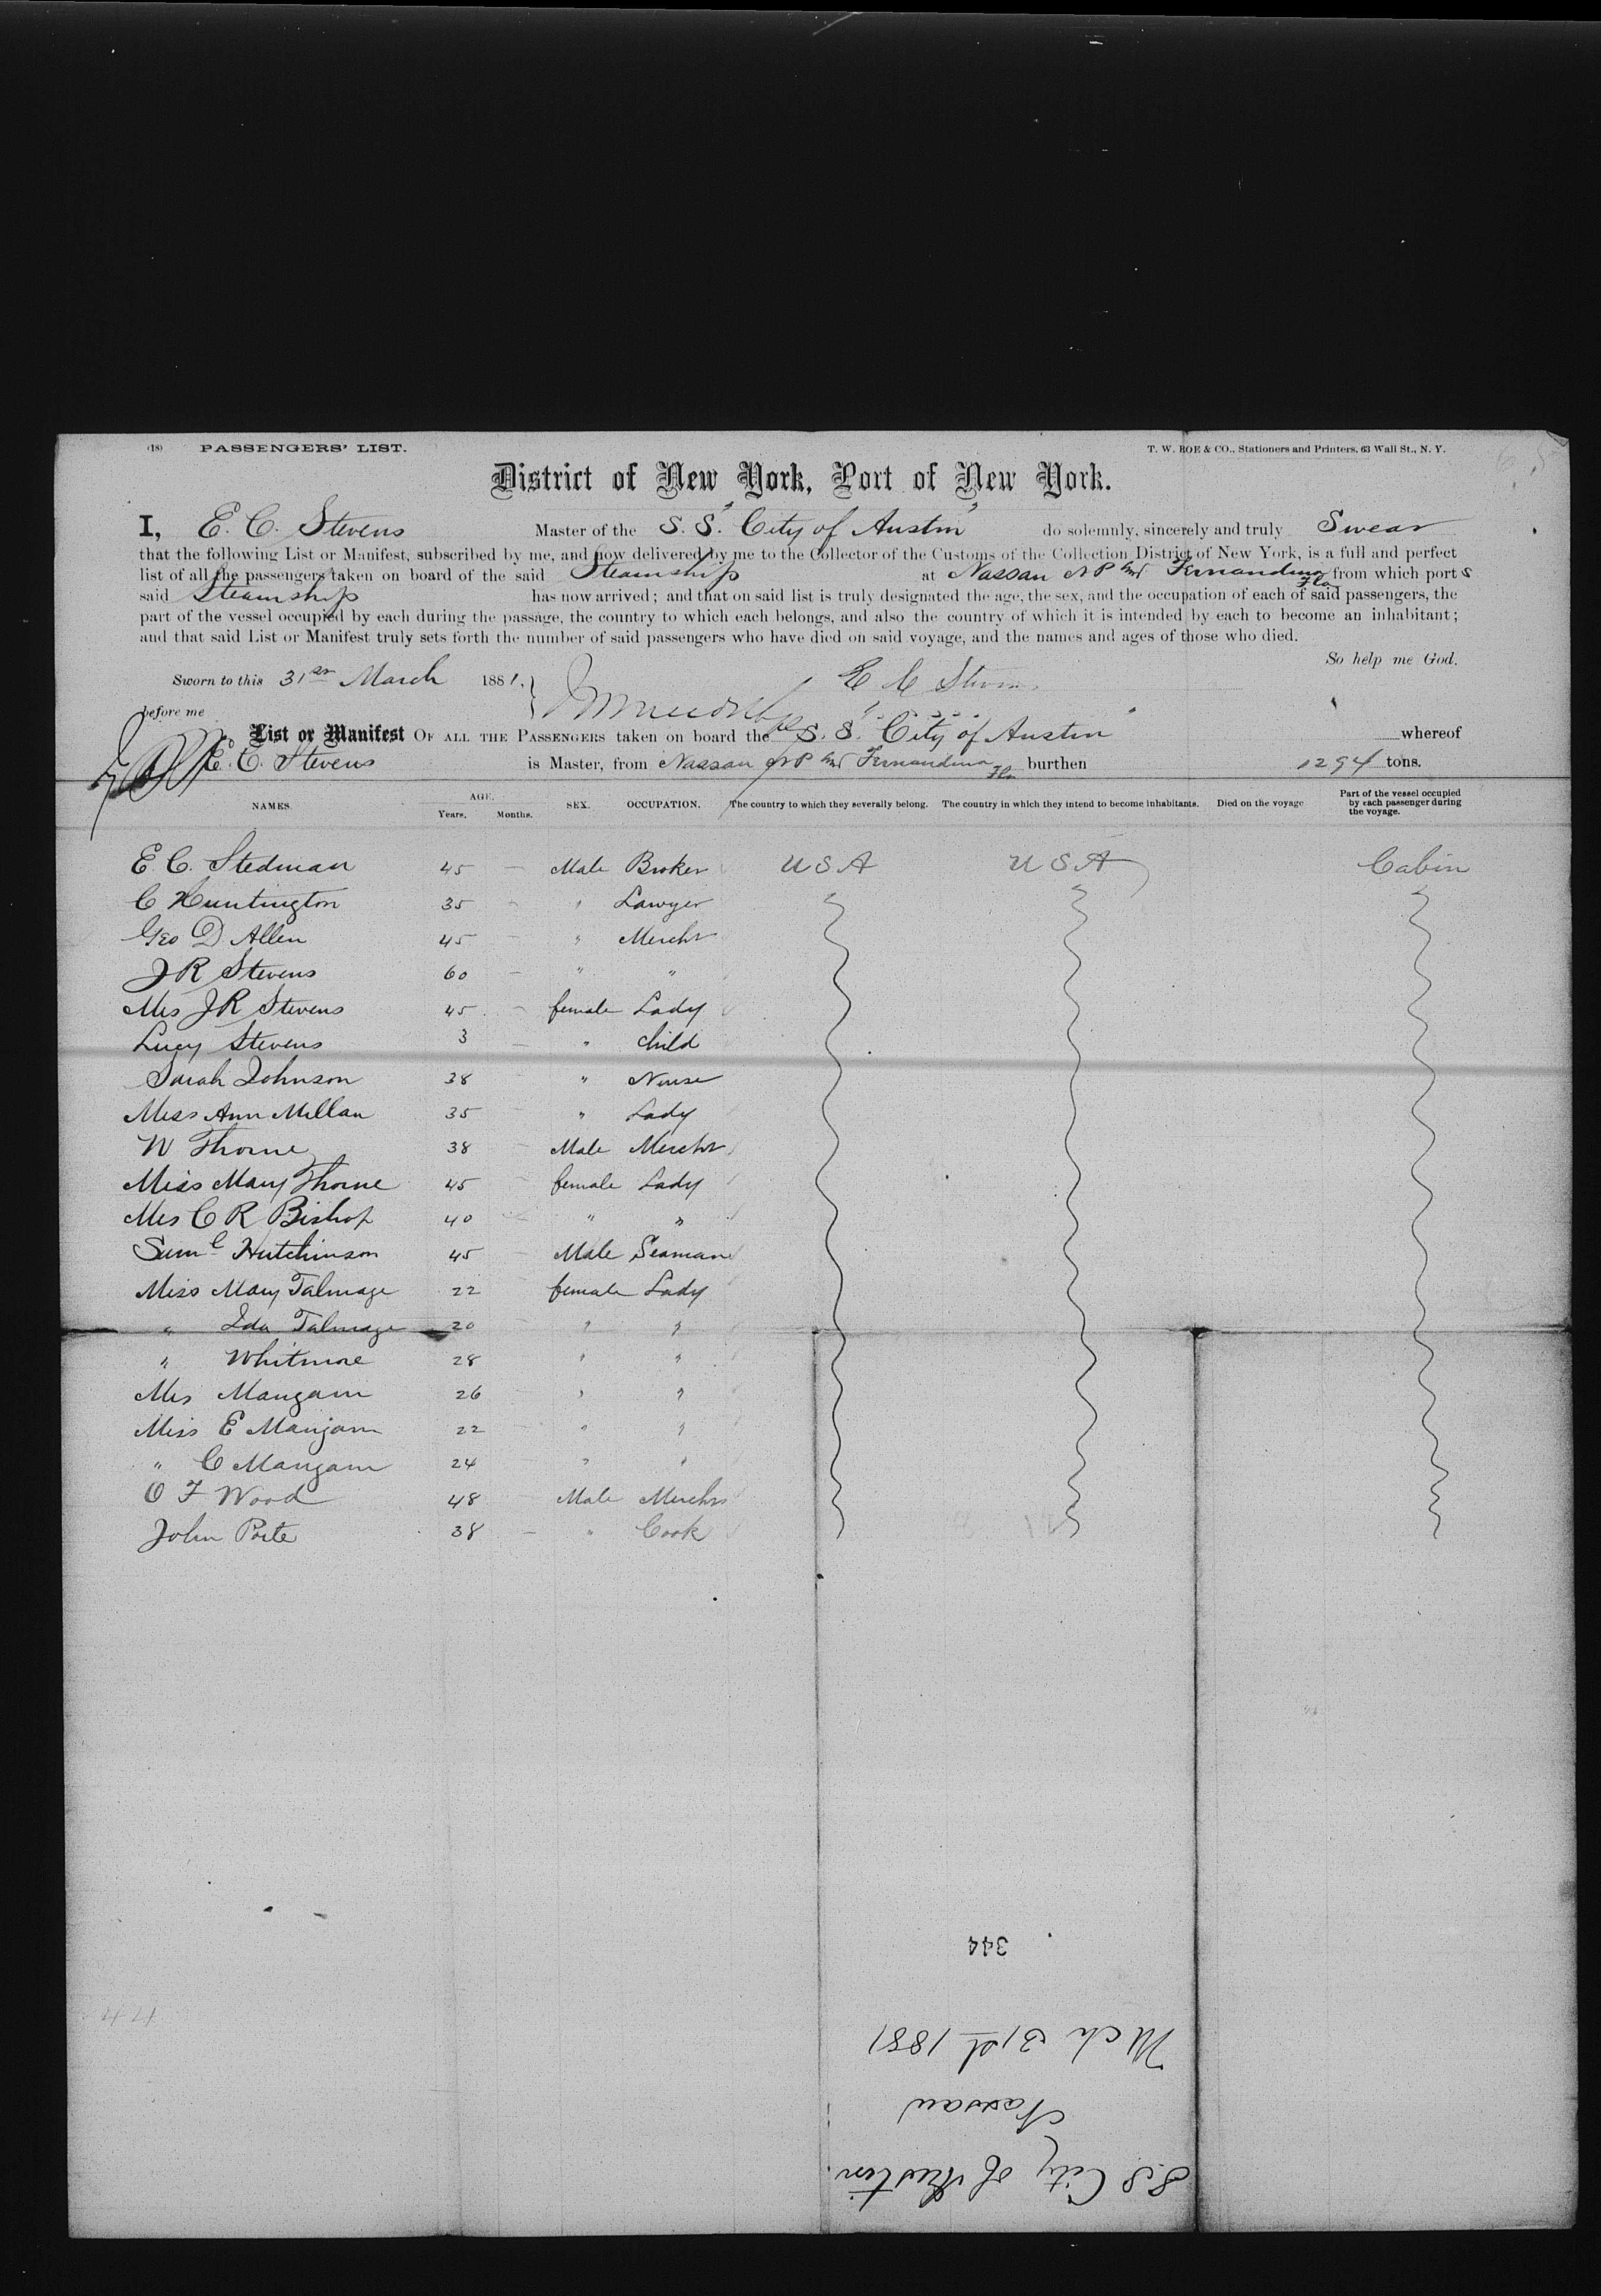 (18) PASSENGERS' LIST. T. W. ROE & CO., Stationers and Printers, 63 Wall St., N. Y.
District of New York, Port of New York.
I, E. C. Stevens Master of the S. S. "City of Austin" do solemnly, sincerely and truly Swear
that the following List or Manifest, subscribed by me, and now delivered by me to the Collector of the Customs of the Collection District of New York, is a full and perfect
list of all the passengers taken on board of the said Steamship at Nassau N P and Fernandina Fla from which port s
said Steamship has now arrived; and that on said list is truly designated the age, the sex, and the occupation of each of said passengers, the
part of the vessel occupied by each during the passage, the country to which each belongs, and also the country of which it is intended by each to become an inhabitant;
and that said List or Manifest truly sets forth the number of said passengers who have died on said voyage, and the names and ages of those who died.
So help me God.
Sworn to this 31st March 1881, E C Stevens
before me
List or Manifest OF ALL THE PASSENGERS taken on board the S. S. "City of Austin" whereof
E. C. Stevens is Master, from Nassau N P and Fernandina Fla burthen 1294 tons.
NAMES. AGE. Years. Months. SEX. OCCUPATION. The country to which they severally belong. The country in which they intend to become inhabitants. Died on the voyage Part of the vessel occupied by each passenger during the voyage.
E. C. Stedman 45 — Male Broker U S A U S A Cabin
C Huntington 35 - " Lawyer
Geo D Allen 45 - " Mercht
J R Stevens 60 - " "
Mrs J R Stevens 45 - female Lady
Lucy Stevens 3 - " Child
Sarah Johnson 38 - " Nurse
Miss Ann Millan 35 - " Lady
W Thorne 38 - Male Mercht
Miss Mary Thorne 45 - female Lady
Mrs C R Bishop 40 - " "
Saml Hutchinson 45 - Male Seaman
Miss Mary Talmage 22 - female Lady
" Ida Talmage 20 - " "
" Whitmore 28 " "
Mrs Mangam 26 - " "
Miss E Mangam 22 - " "
" C Mangam 24 - " "
O F Wood 48 - Male Mercht
John Porte 38 - " Cook
344
Mch 31st 1881
Nassau
S.S City of Austin.